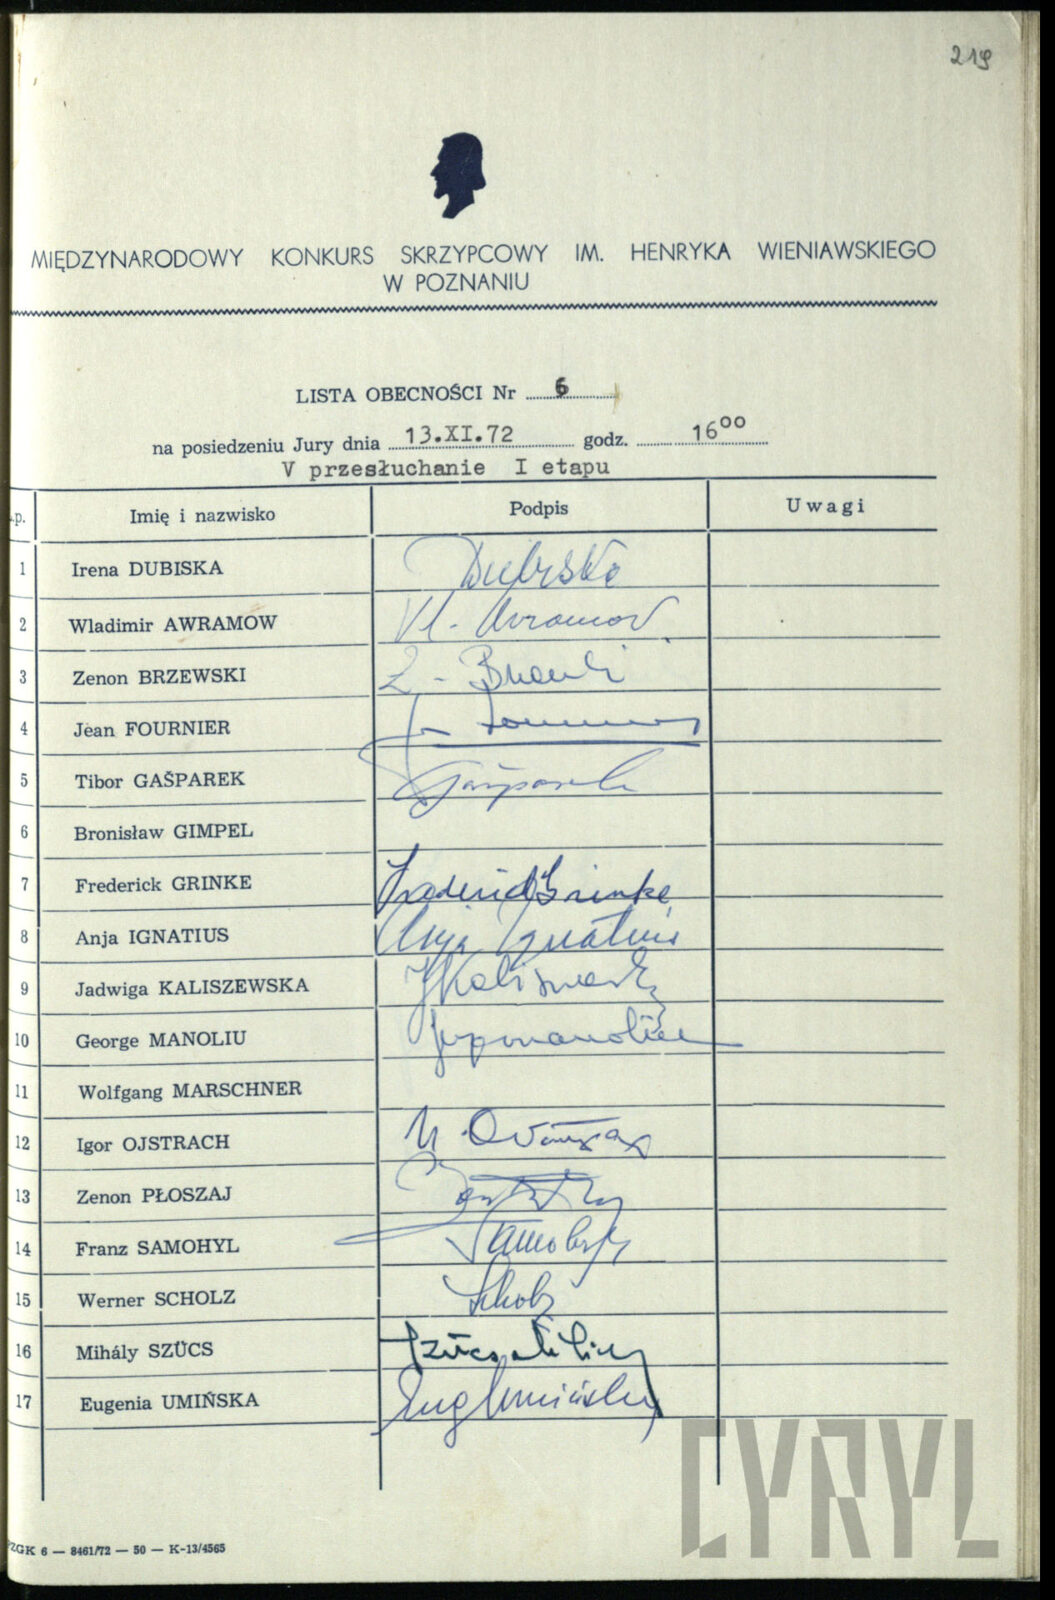 219
MIĘDZYNARODOWY KONKURS SKRZYPCOWY IM. HENRYKA WIENIAWSKIEGO
W POZNANIU
LISTA OBECNOŚCI Nr 6
na posiedzeniu Jury dnia 13.XI.72 godz. 16⁰⁰
V przesłuchanie I etapu
.p. Imię i nazwisko Podpis Uwagi
1 Irena DUBISKA Dubiska
2 Wladimir AWRAMOW Vl. Avramov.
3 Zenon BRZEWSKI Z.
4 Jean FOURNIER
5 Tibor GAŠPAREK Gašparek
6 Bronisław GIMPEL
7 Frederick GRINKE Frederick Grinke
8 Anja IGNATIUS Anja Ignatius
9 Jadwiga KALISZEWSKA JKaliszewska
10 George MANOLIU
11 Wolfgang MARSCHNER
12 Igor OJSTRACH
13 Zenon PŁOSZAJ
14 Franz SAMOHYL Samohyl
15 Werner SCHOLZ Scholz
16 Mihály SZÜCS Szücs Mihály
17 Eugenia UMIŃSKA Eug Umińska
ZGK 6 — 8461/72 — 50 — K-13/4565
CYRYL